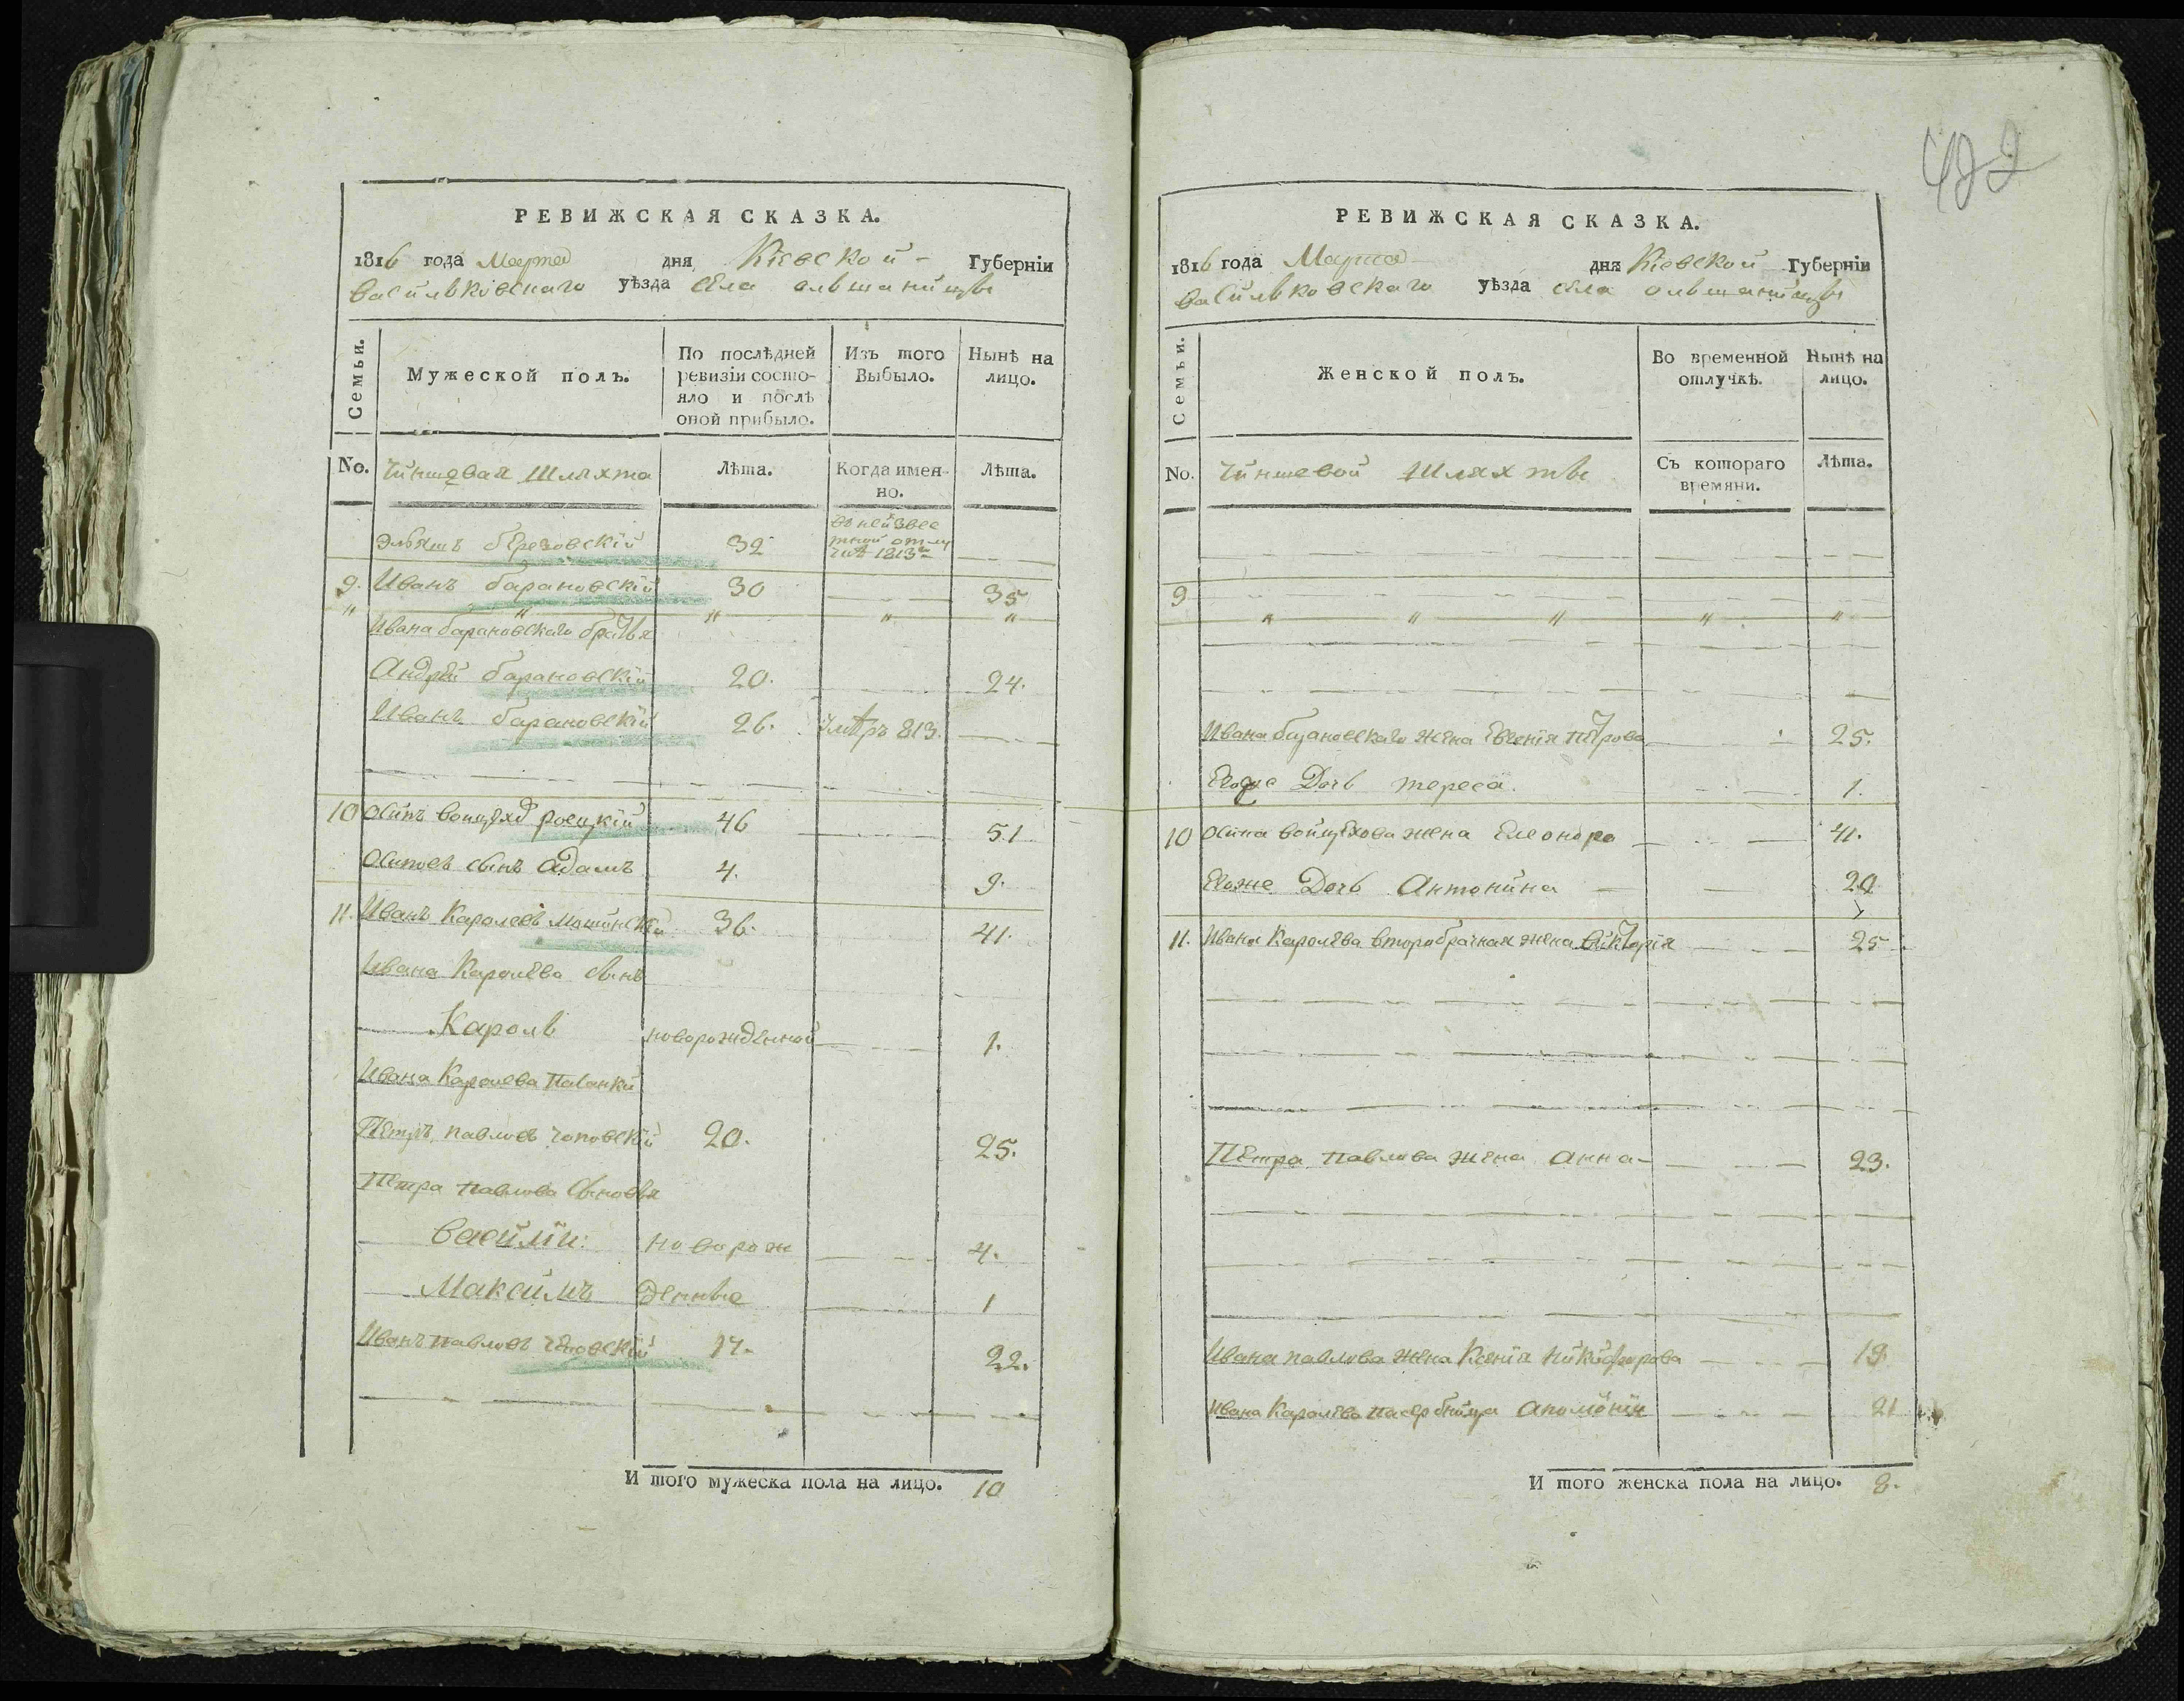 422
РЕВИЖСКАЯ СКАЗКА.
1816 года Марта дня Кіевской Губерніи
Васильковскаго уѣзда села ольшаницы
Семьи.
Мужеской полъ.
По послѣдней ревизіи состо-
яло и послѣ
оной прибыло.
Изъ того
Выбыло.
Нынѣ на
лицо.
No. Чиншевая Шляхта
Лѣта.
Когда имен-
но.
Лѣта.
березовскій 32 въ неизвес
тной отлу
чкѣ 1813го
9. Иванъ барановскій 30 35
" " " " "
Ивана барановскаго братья
Андрѣй барановскій 20. 24.
Иванъ барановскій 26. Умѣръ 813.
10 Осипъ роецкій 46 51
Осиповъ сынъ адамъ 4. 9.
11. Иванъ Каролевъ 36. 41.
Ивана Каролѣва сынъ
Кароль новорожденной 1.
Ивана Каролева Пасынки
Петръ павловъ 20. 25.
Петра павлова сыновья
василій: новорож 4.
Максимъ денные 1
Иванъ павловъ 17. 22.
И того мужеска пола на лицо. 10
РЕВИЖСКАЯ СКАЗКА.
1816 года Марта дня Кіевской Губерніи
васильковскаго уѣзда села ольшаницы
Семьи.
Женской полъ.
Во временной
отлучкѣ.
Нынѣ на
лицо.
No. Чиншевой Шляхты
Съ котораго
времяни.
Лѣта.
9
" " " " "
Ивана барановскаго жена Евгенія пѣтрова 25.
Егоже Дочь тереса. 1.
10 Осипа войцѣхова жена Елеонора 41.
Егоже Дочь Антонина 20
11. Ивана Каролѣва второбрачная жена викторія 25
Пѣтра павлова жена анна 23.
Ивана павлова жена Ксенія никифорова 19.
Ивана Каролѣва падчерица 21
И того женска пола на лицо. 8.